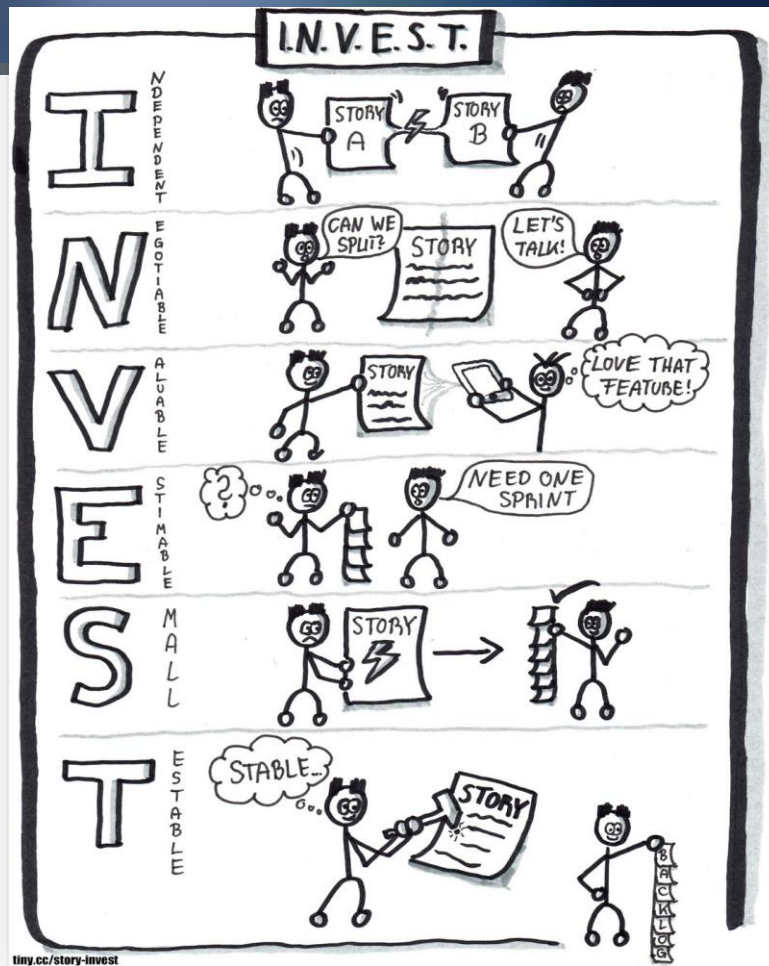 I.N.V.E.S.T.
INDEPENDENT
STORY A
STORY B
NEGOTIABLE
CAN WE SPLIT?
STORY
LET'S TALK!
VALUABLE
STORY
LOVE THAT FEATURE!
ESTIMABLE
?
NEED ONE SPRINT
SMALL
STORY
TESTABLE
STABLE...
STORY
BACKLOG
tiny.cc/story-invest